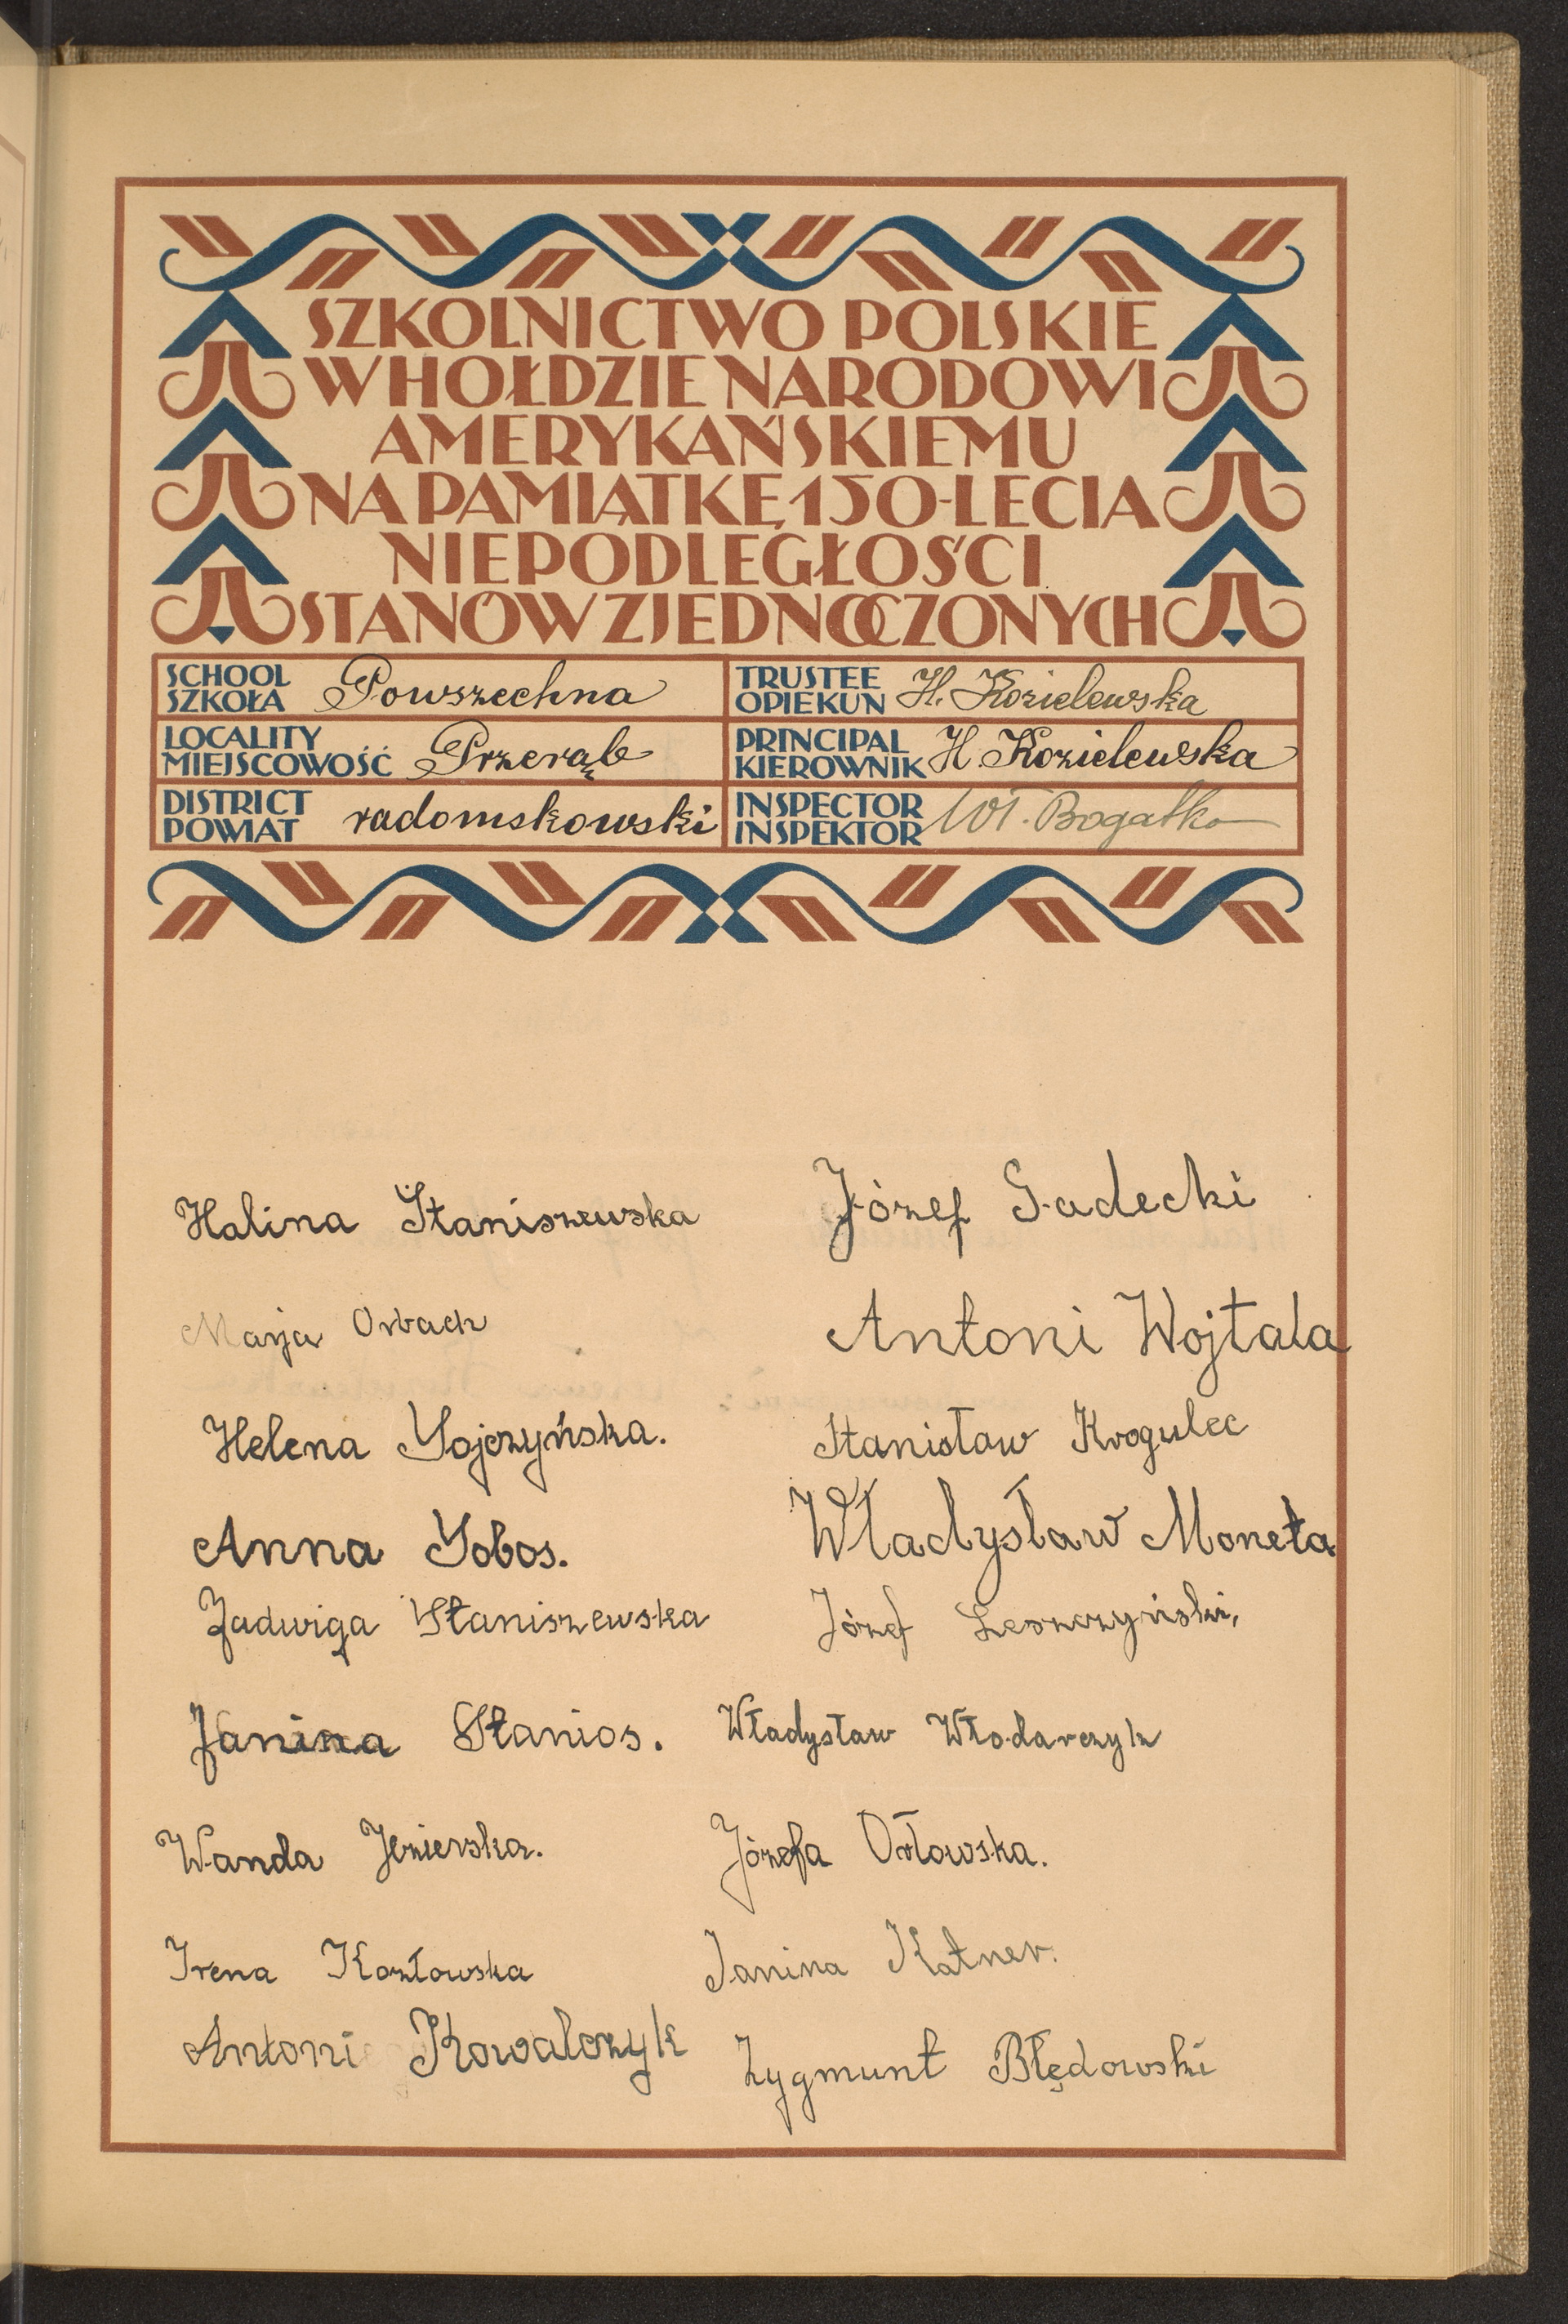 SZKOLNICTWO POLSKIE
W HOŁDZIE NARODOWI
AMERYKAŃSKIEMU
NA PAMIĄTKĘ 150-LECIA
NIEPODLEGŁOŚCI
STANÓW ZJEDNOCZONYCH
SCHOOL
SZKOŁA Powszechna
TRUSTEE
OPIEKUN H. Kozielewska
LOCALITY
MIEJSCOWOŚĆ Przerąb
PRINCIPAL
KIEROWNIK H. Kozielewska
DISTRICT
POWIAT radomskowski
INSPECTOR
INSPEKTOR Wł. Bogatko
Halina Staniszewska
Marja Orbach
Helena
Anna
Jadwiga Staniszewska
Janina Stanios.
Wanda Jezierska.
Irena Kozłowska
Antoni Kowalczyk
Józef Gadecki
Antoni Wojtala
Stanisław Krogulec
Władysław Moneta
Józef Leszczyński,
Władysław Włodarczyk
Józefa Orłowska.
Janina Katner.
Zygmunt Błędowski